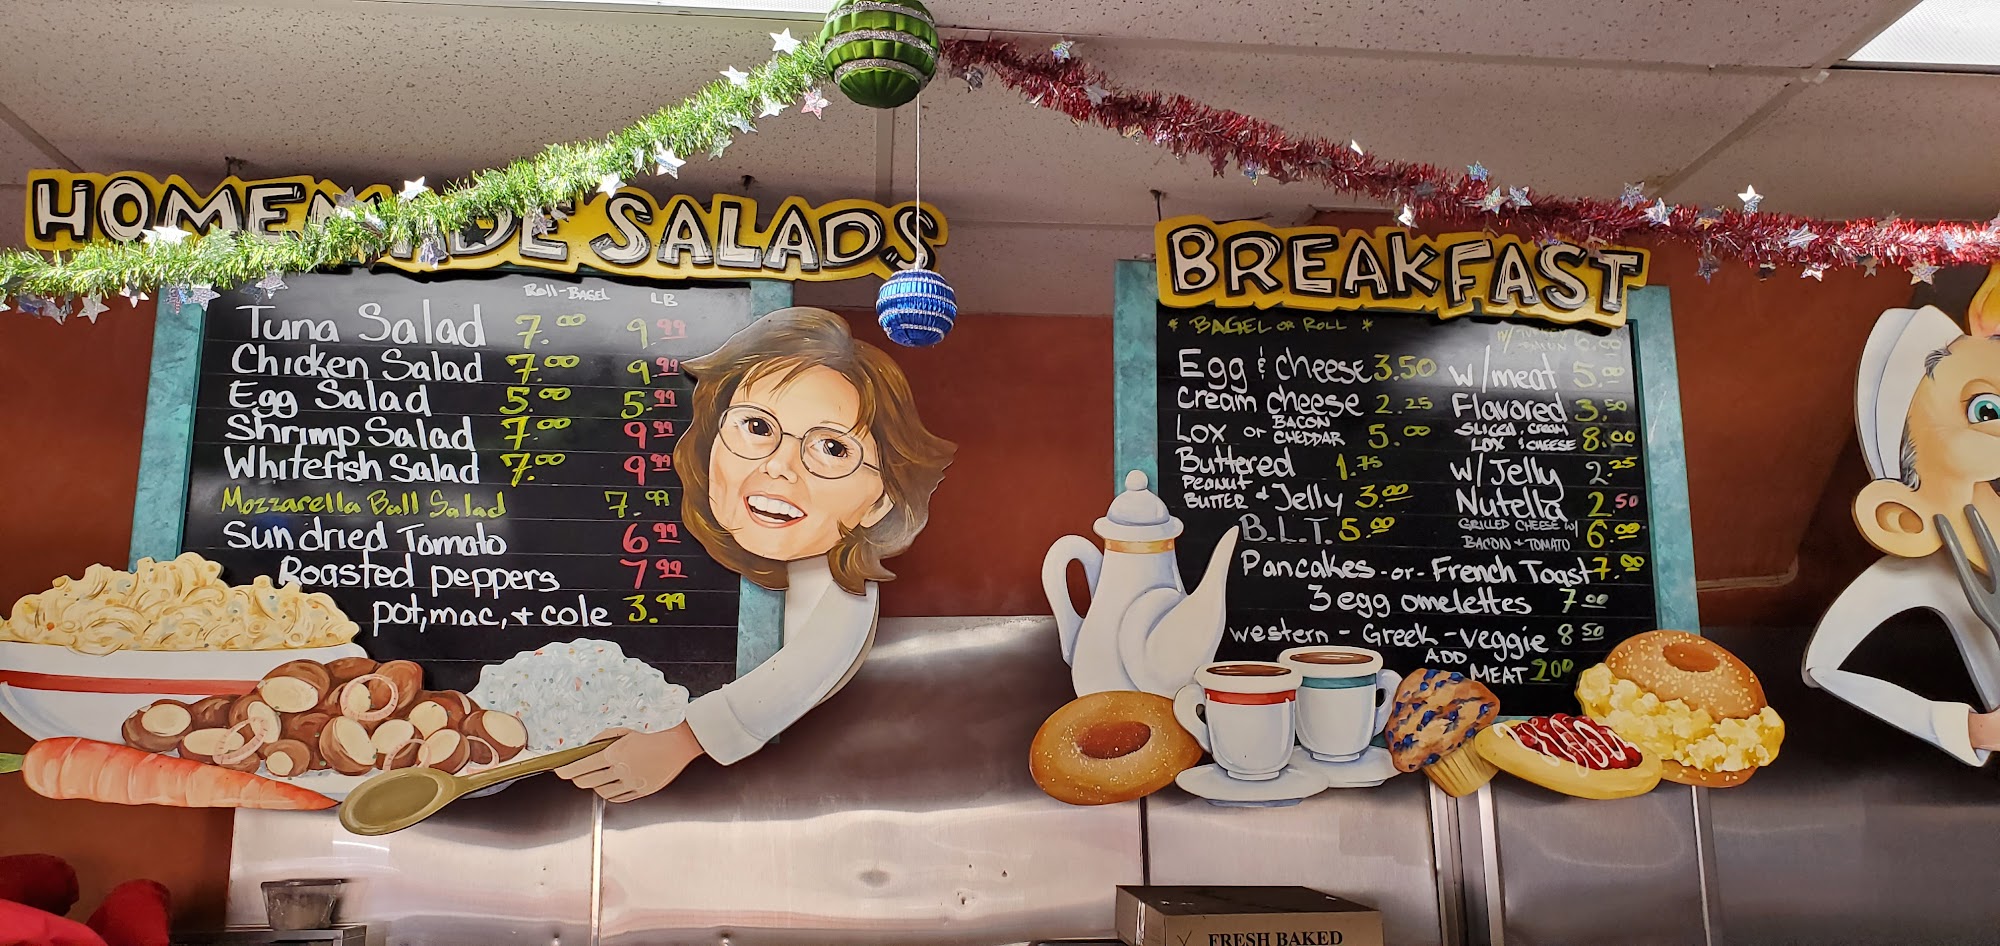 HOMEMADE SALADS
Roll-BAGEL LB
Tuna Salad 7.00 9.99
Chicken Salad 7.00 9.99
Egg Salad 5.00 5.99
Shrimp Salad 7.00 9.99
Whitefish Salad 7.00 9.99
Mozzarella Ball Salad 7.99
Sundried Tomato 6.99
Roasted peppers 7.99
pot, mac, + cole 3.99
BREAKFAST
* BAGEL or ROLL *
W/ TURKEY BACON 6.00
Egg & cheese 3.50 w/meat 5.00
cream cheese 2.25 Flavored 3.50
Lox or BACON CHEDDAR 5.00 SLICED LOX & CREAM CHEESE 8.00
Buttered 1.75 w/Jelly 2.25
PEANUT BUTTER + Jelly 3.00 Nutella 2.50
B.L.T. 5.00 GRILLED CHEESE w/ BACON + TOMATO 6.00
Pancakes -or- French Toast 7.00
3 egg omelettes 7.00
western - Greek - veggie 8.50
ADD MEAT 9.00
FRESH BAKED